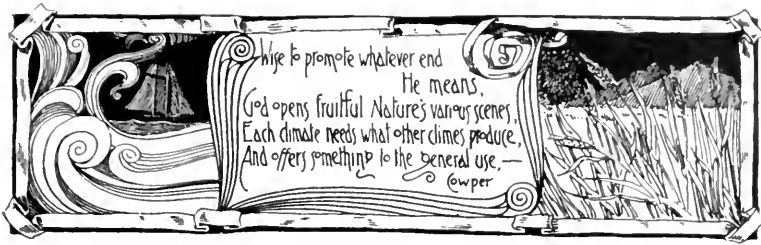 Wise to promote whatever end
He means,
God opens fruitful Nature's various scenes,
Each climate needs what other climes produce,
And offers something to the general use, —
Cowper